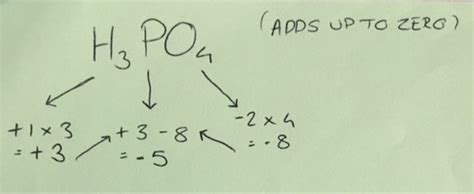 H₃PO₄ (ADDS UP TO ZERO)
+1 x 3 +3 - 8 -2 x 4
= +3 = -5 = -8